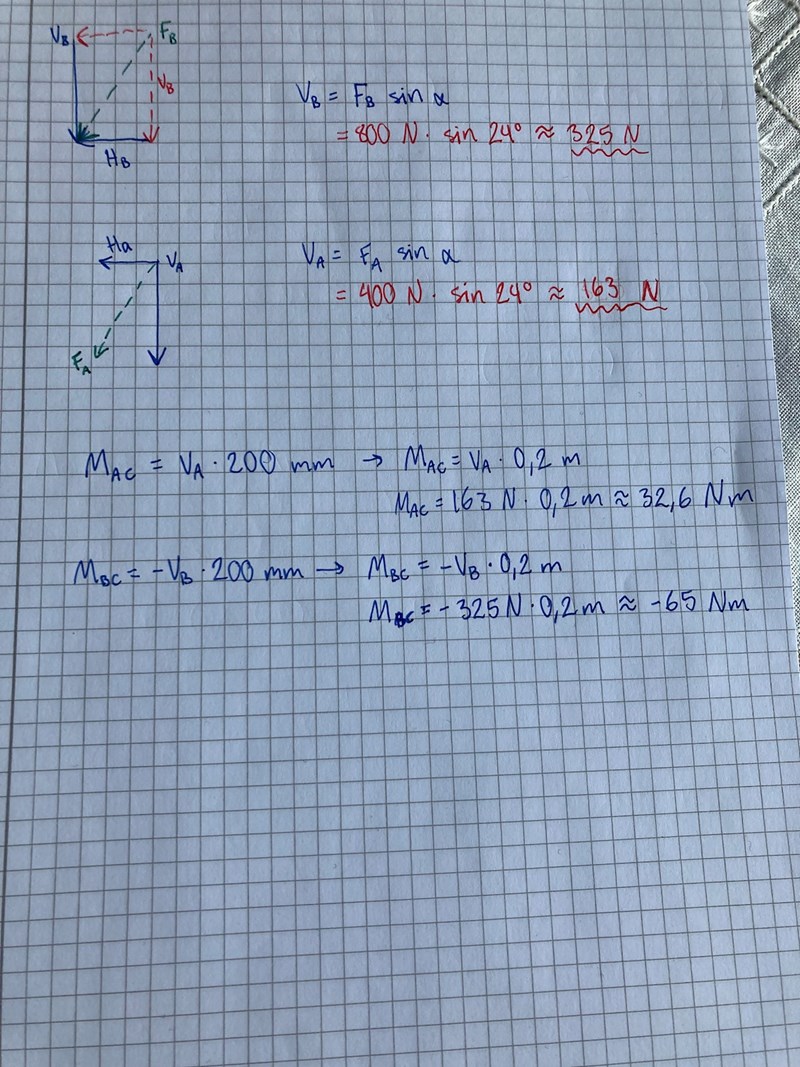 V_B F_B
V_B
H_B
V_B = F_B sin α
= 800 N · sin 24° ≈ 325 N
Ha V_A
F_A
V_A = F_A sin α
= 400 N · sin 24° ≈ 163 N
M_AC = V_A · 200 mm → M_AC = V_A · 0,2 m
M_AC = 163 N · 0,2 m ≈ 32,6 Nm
M_BC = -V_B · 200 mm → M_BC = -V_B · 0,2 m
M_BC = - 325 N · 0,2 m ≈ -65 Nm